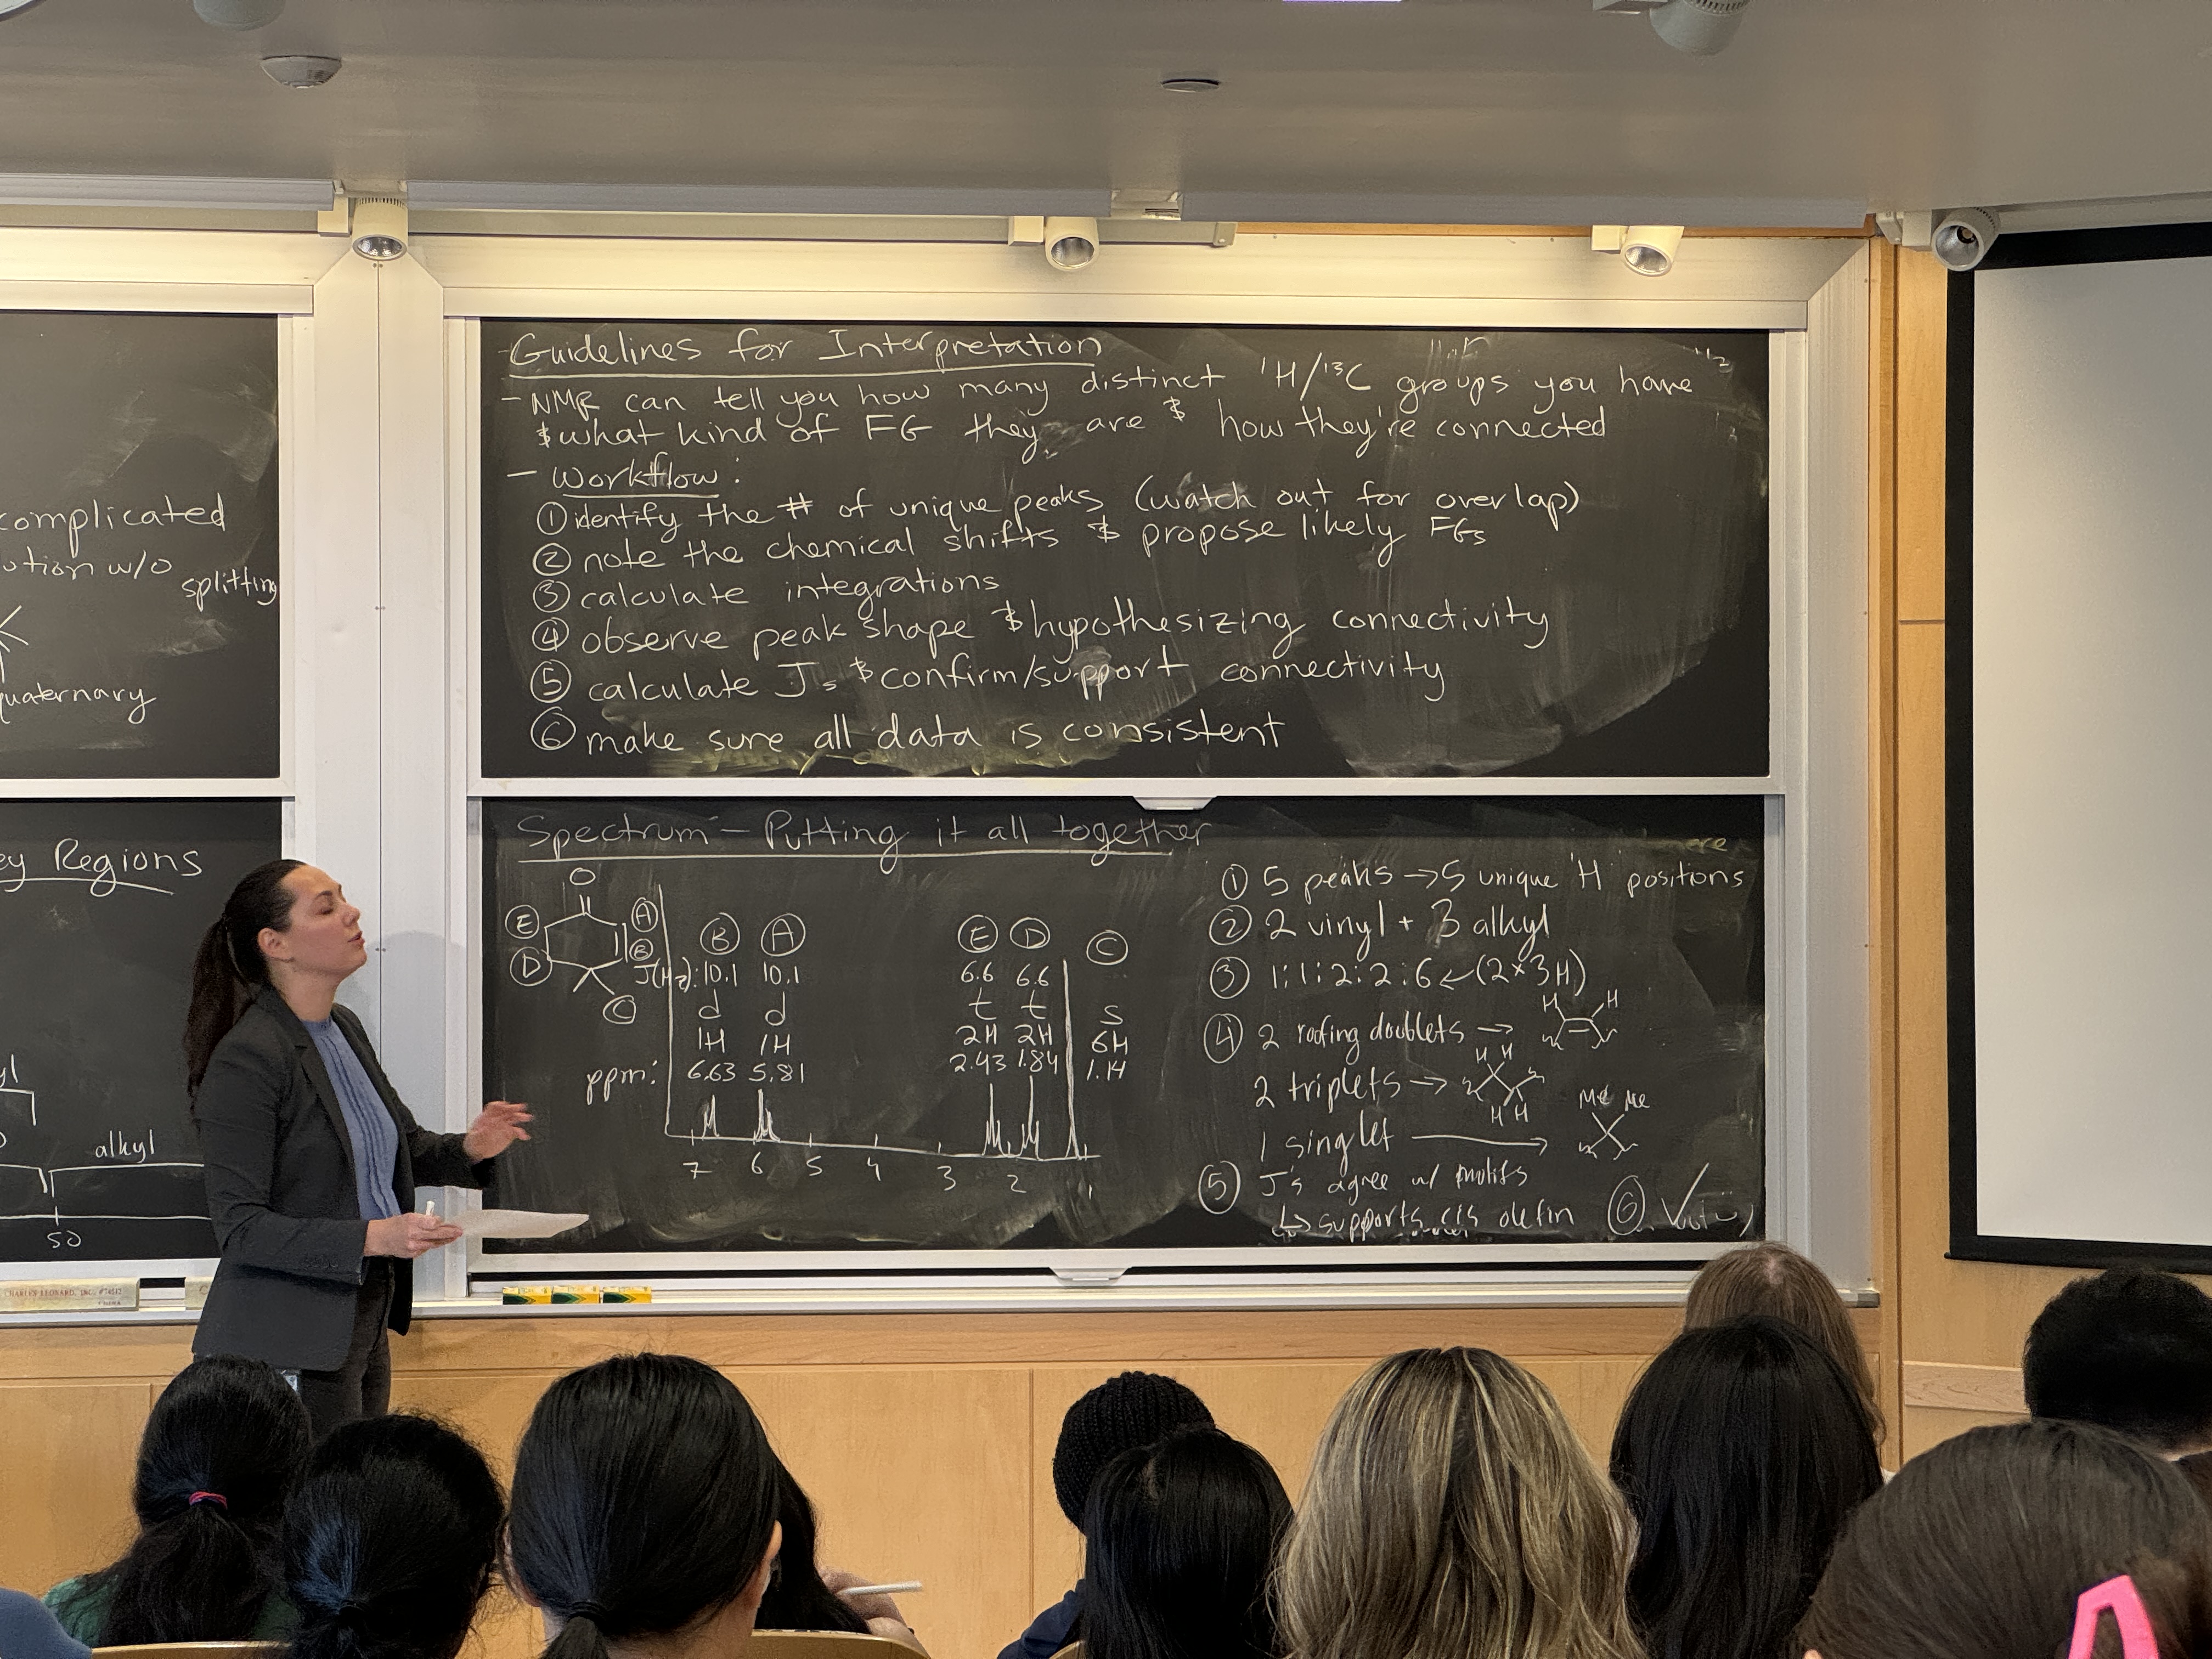 complicated
ution w/o
splitting
quaternary
ey Regions
yl
alkyl
50
CHARLES LEONARD, INC.
Guidelines for Interpretation
- NMR can tell you how many distinct ¹H/¹³C groups you have
& what kind of FG they are & how they're connected
- Workflow:
① identify the # of unique peaks (watch out for overlap)
② note the chemical shifts & propose likely FGs
③ calculate integrations
④ observe peak shape & hypothesizing connectivity
⑤ calculate Js & confirm/support connectivity
⑥ make sure all data is consistent
Spectrum - Putting it all together
O
E A
D B
C
B A E D C
J(Hz): 10.1 10.1 6.6 6.6
d d t t s
1H 1H 2H 2H 6H
ppm: 6.63 5.81 2.43 1.84 1.14
7 6 5 4 3 2 1
① 5 peaks → 5 unique ¹H positions
② 2 vinyl + 3 alkyl
③ 1:1:2:2:6 ← (2×3H)
H H
④ 2 roofing doublets →
H H
2 triplets →
H H
Me Me
1 singlet →
⑤ J's agree w/ motifs
↳ supports cis olefin ⑥ ✓